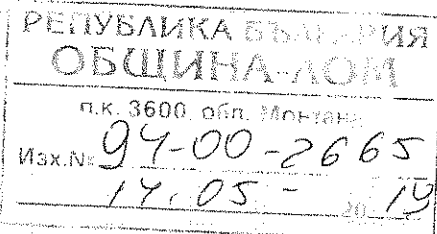 РЕПУБЛИКА БЪЛГАРИЯ
ОБЩИНА-ЛОМ
п.к. 3600, обл. Монтана
Изх.№ 94-00-2665
14.05 - 2019